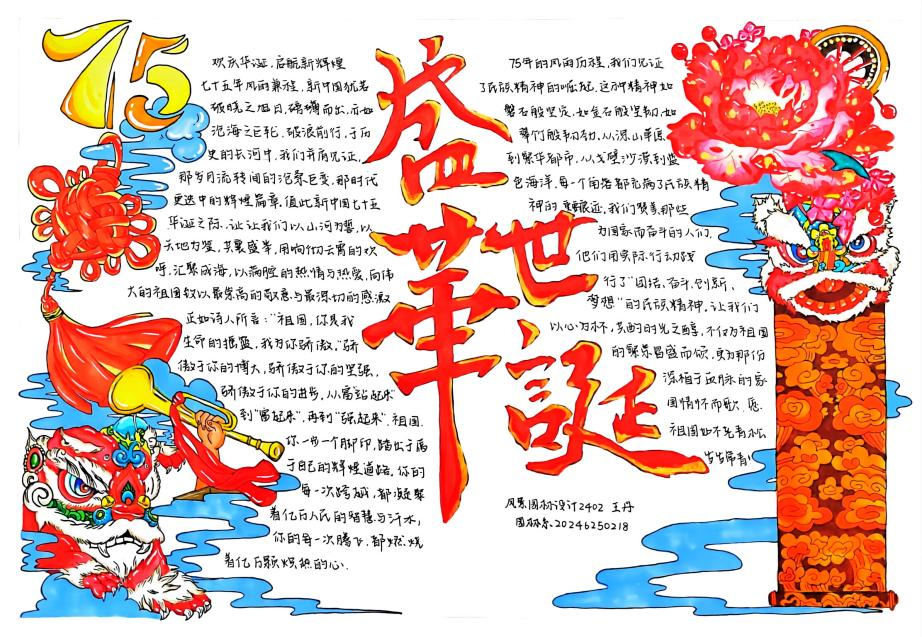 75
盛世華誕
欢庆华诞，启航新辉煌
七十五年风雨兼程，新中国犹若
破晓之旭日，磅礴而出，亦如
沧海之巨轮，破浪前行，于历
史的长河中，我们并肩见证，
那岁月流转间的沧桑巨变，那时代
更迭中的辉煌篇章，值此新中国七十五
华诞之际，让我们以山河为誓，以
天地为鉴，共襄盛举，用响彻云霄的欢
呼，汇聚成海，以满腔的热情与热爱，向伟
大的祖国致以最崇高的敬意与最深切的感激
正如诗人所言："祖国，你是我
生命的摇篮，我为你骄傲，"骄
傲于你的博大，骄傲于你的坚强，
骄傲于你的进步，从"富站起来"
到"富起来"，再到"强起来"，祖国，
你一步一个脚印，踏出了属
于自己的辉煌道路，你的
每一次跨越，都凝聚
着亿万人民的智慧与汗水，
你的每一次腾飞，都燃烧
着亿万颗炽热的心。
75年的风雨历程，我们见证
了民族精神的崛起，这种精神如
磐石般坚定，如金石般坚韧，如
从深山草原
到繁华都市，从戈壁沙漠到蓝
色海洋，每一个角落都充满了民族精
神的痕迹，我们赞美那些
为国家而奋斗的人们，
他们用实际行动践
行了"团结、奋斗、创新、
梦想"的民族精神，让我们
以心为杯，共酌时光之醇，不仅为祖国
的繁荣昌盛而倾，更为那份
深植于血脉的家
国情怀而歌，愿
祖国如不老青松
岁岁常青！
风景园林设计2402 王丹
园林系 20246250218